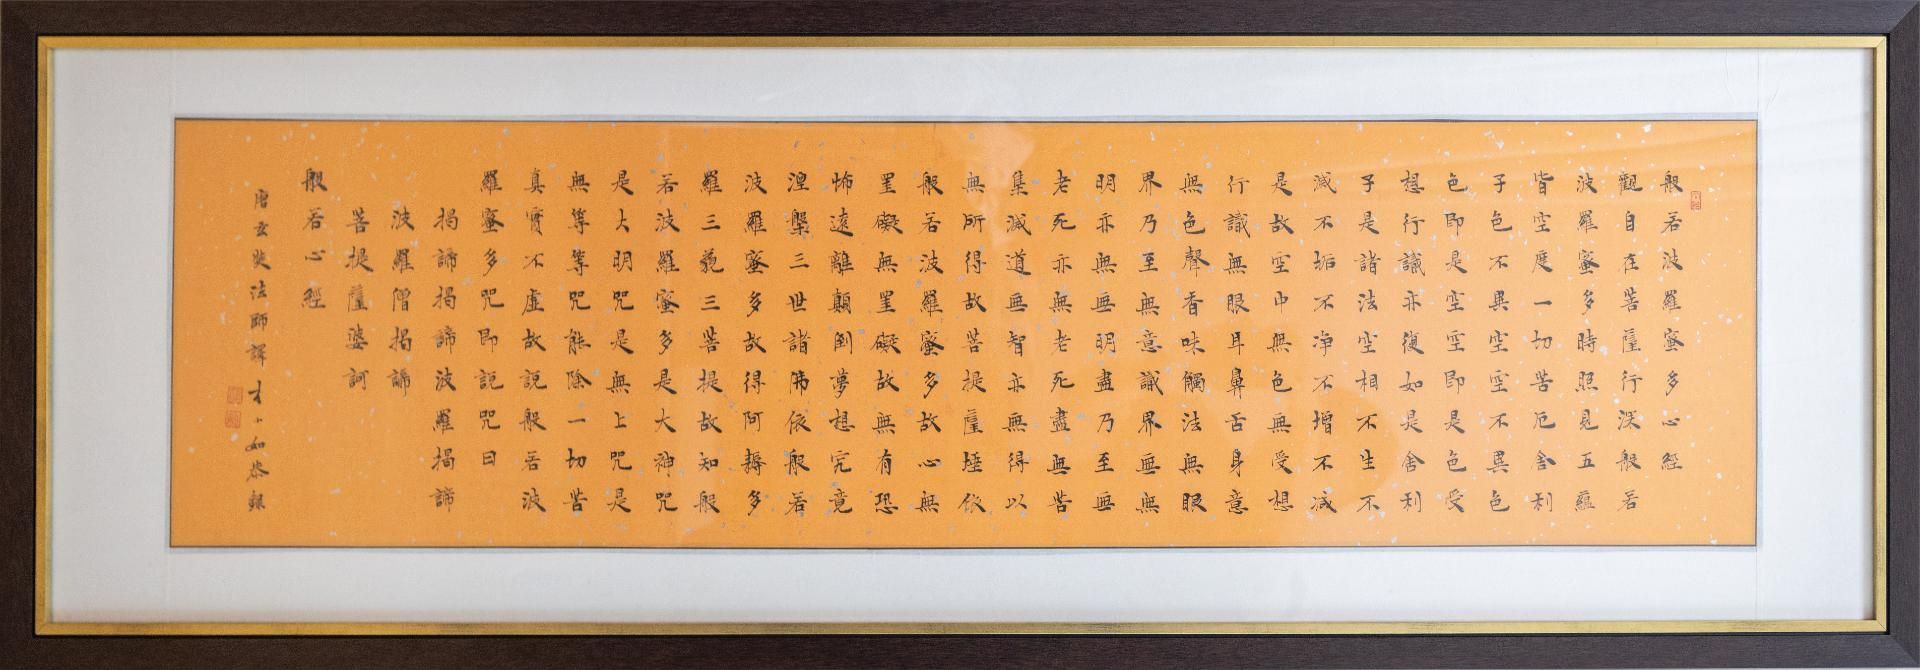 般若波羅蜜多心經
觀自在菩薩行深般若
波羅蜜多時照見五蘊
皆空度一切苦厄舍利
子色不異空空不異色
色即是空空即是色受
想行識亦復如是舍利
子是諸法空相不生不
滅不垢不净不增不减
是故空中無色無受想
行識無眼耳鼻舌身意
無色聲香味觸法無眼
界乃至無意識界無無
明亦無無明盡乃至無
老死亦無老死盡無苦
集滅道無智亦無得以
無所得故菩提薩埵依
般若波羅蜜多故心無
罣礙無罣礙故無有恐
怖遠離顛倒夢想究竟
涅槃三世諸佛依般若
波羅蜜多故得阿耨多
羅三藐三菩提故知般
若波羅蜜多是大神咒
是大明咒是無上咒是
無等等咒能除一切苦
真實不虛故説般若波
羅蜜多咒即説咒曰
揭諦揭諦波羅揭諦
波羅僧揭諦
菩提薩婆訶
般若心經
唐玄奘法師譯 如恭録